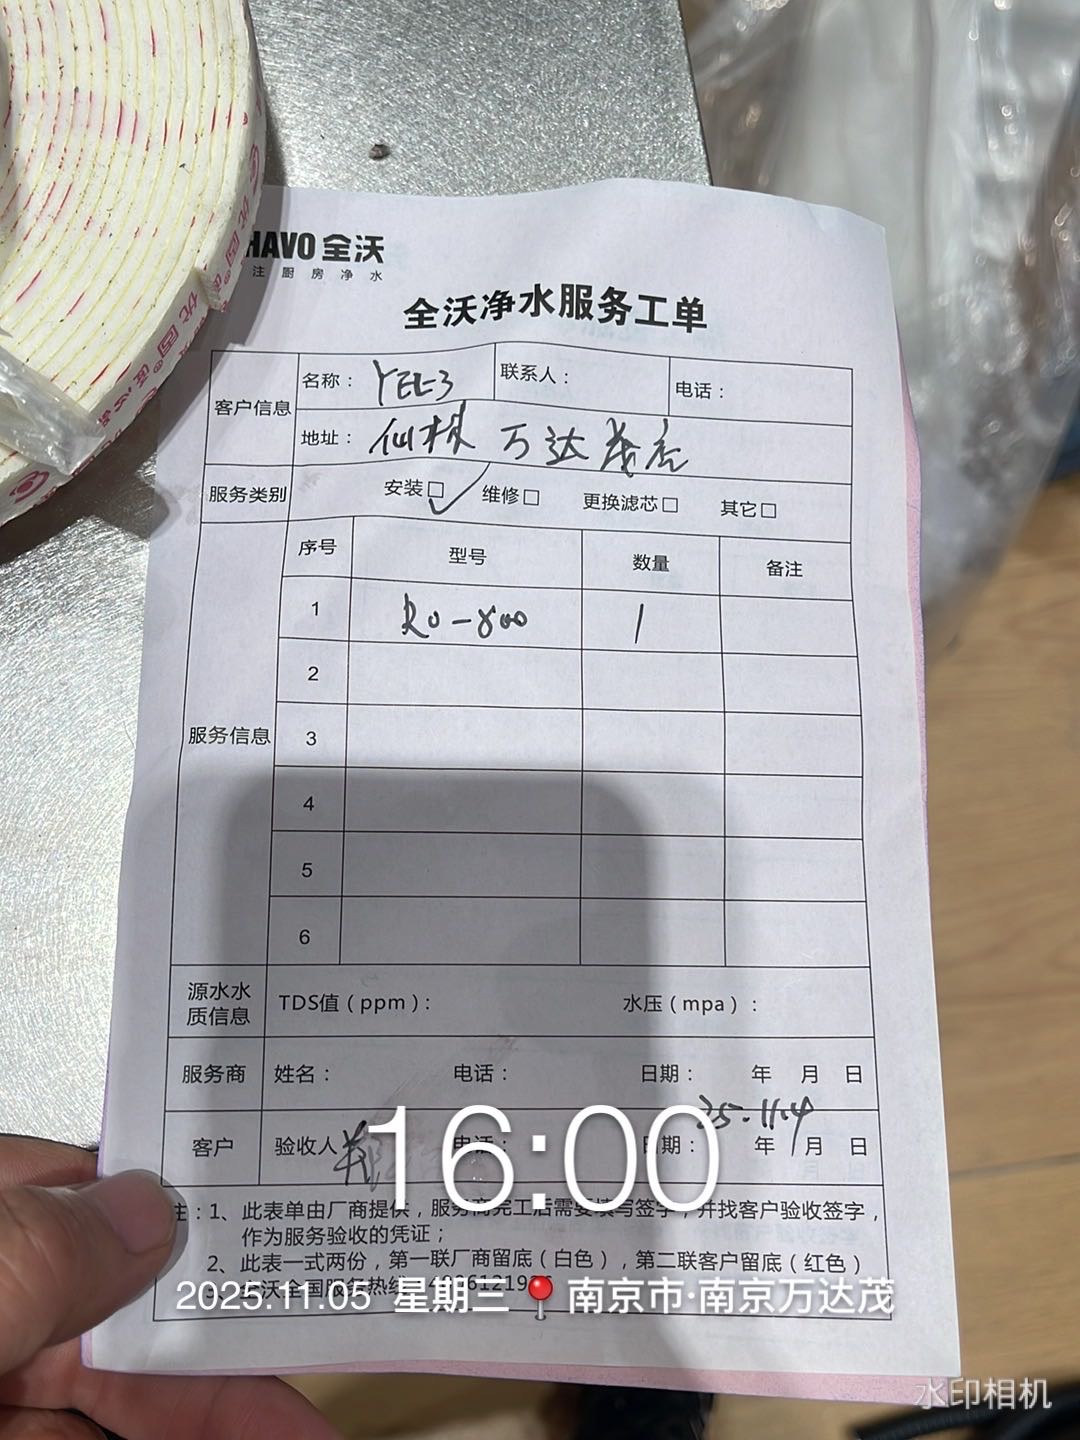 HAVO 全沃
注厨房净水
全沃净水服务工单
客户信息
名称： YEL-3
联系人：
电话：
地址： 仙林 万达茂店
服务类别
安装□✓ 维修□ 更换滤芯□ 其它□
服务信息
序号 型号 数量 备注
1 RO-800 1
2
3
4
5
6
源水水质信息
TDS值（ppm）： 水压（mpa）：
服务商 姓名： 电话： 日期： 年 月 日
25.11.4
客户 验收人 电话： 日期： 年 月 日
16:00
注：1、此表单由厂商提供，服务商完工后需要填写签字，并找客户验收签字，
作为服务验收的凭证；
2、此表一式两份，第一联厂商留底（白色），第二联客户留底（红色）
3、全沃全国服务热线
2025.11.05 星期三 南京市·南京万达茂
水印相机